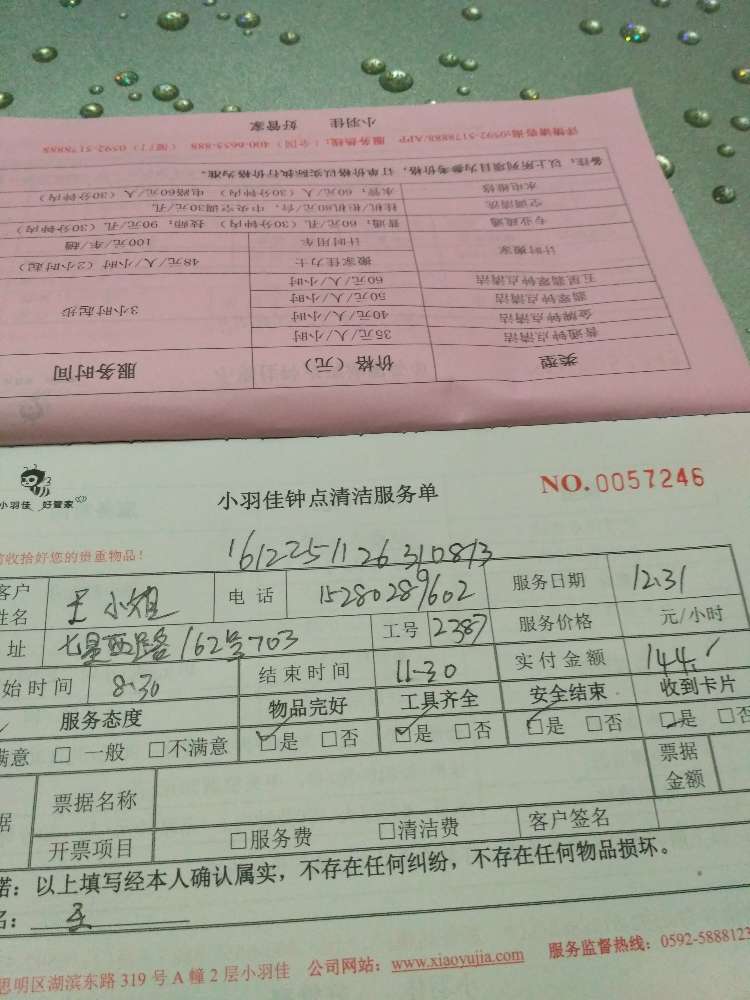 小羽佳 好管家
详情请咨询:0592-5178888/APP 服务热线:(全国)400-6655-888 (厦门)0592-5178888
备注:以上所列项目为参考价格,订单价格以实际执行价格为准。
水电维修 水管:60元/人(30分钟内) 电路60元/人(30分钟内)
空调清洗 挂机柜机80元/台,中央空调30元/孔
专业疏通 普通:60元/孔(30分钟内) 技师:90元/孔(30分钟内)
计时用车 100元/车/趟
计时搬家
搬家佳力士 48元/人/小时(2小时起)
五星翡翠钟点清洁 60元/人/小时
翡翠钟点清洁 50元/人/小时
3小时起步
金牌钟点清洁 40元/人/小时
普通钟点清洁 35元/人/小时
类型 价格(元) 服务时间
小羽佳 好管家
小羽佳钟点清洁服务单
NO.0057246
收拾好您的贵重物品!
1612251126310873
客户姓名 王小姐 电话 15280289602 服务日期 12.31
址 七星西路162号703 工号 2387 服务价格 元/小时
始时间 8.30 结束时间 11.30 实付金额 144
服务态度 物品完好 工具齐全 安全结束 收到卡片
满意 □一般 □不满意 □是 □否 □是 □否 □是 □否 □是 □否
据 票据名称 票据金额
开票项目 □服务费 □清洁费 客户签名
诺:以上填写经本人确认属实,不存在任何纠纷,不存在任何物品损坏。
名: 王
思明区湖滨东路319号A幢2层小羽佳 公司网站:www.xiaoyujia.com 服务监督热线:0592-5888123